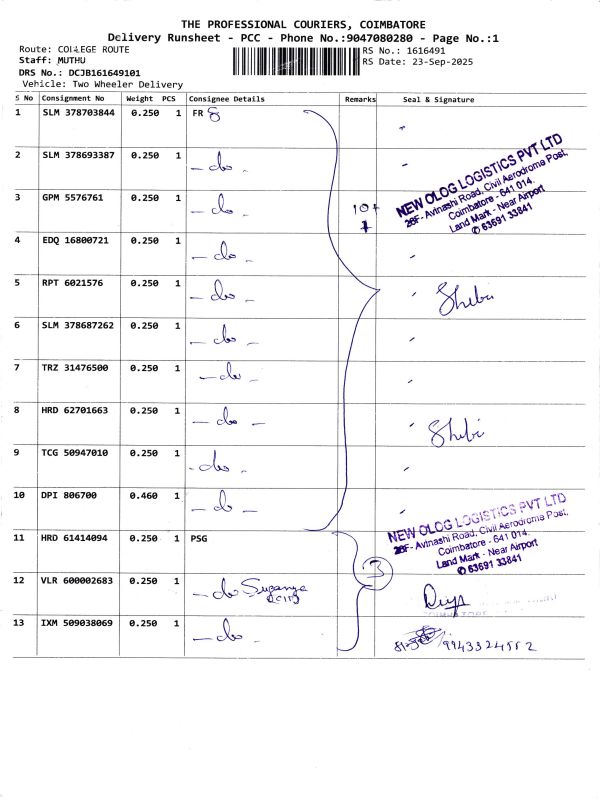 THE PROFESSIONAL COURIERS, COIMBATORE
Delivery Runsheet - PCC - Phone No.:9047080280 - Page No.:1
Route: COLLEGE ROUTE
Staff: MUTHU
DRS No.: DCJB161649101
Vehicle: Two Wheeler Delivery
RS No.: 1616491
RS Date: 23-Sep-2025
S No Consignment No Weight PCS Consignee Details Remarks Seal & Signature
1 SLM 378703844 0.250 1 FR
2 SLM 378693387 0.250 1 - do -
3 GPM 5576761 0.250 1 - do - 10+
NEW OLOG LOGISTICS PVT LTD
28F- Avinashi Road, Civil Aerodrome Post,
Coimbatore - 641 014.
Land Mark - Near Airport
✆ 63691 33841
4 EDQ 16800721 0.250 1 - do -
5 RPT 6021576 0.250 1 - do - Shebi
6 SLM 378687262 0.250 1 - do -
7 TRZ 31476500 0.250 1 - do -
8 HRD 62701663 0.250 1 - do - Shebi
9 TCG 50947010 0.250 1 - do -
10 DPI 806700 0.460 1 - do -
11 HRD 61414094 0.250 1 PSG
NEW OLOG LOGISTICS PVT LTD
28F- Avinashi Road, Civil Aerodrome Post,
Coimbatore - 641 014.
Land Mark - Near Airport
✆ 63691 33841
3
12 VLR 600002683 0.250 1 - do Suganya
13 IXM 509038069 0.250 1 - do - 9943324552